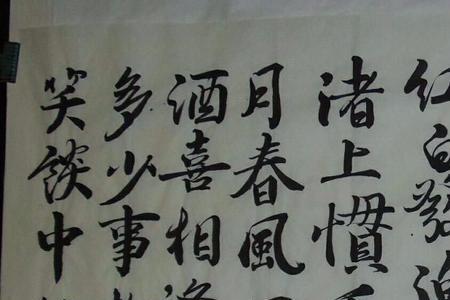 红白發
渚上慣
月春風
酒喜相
多少事
笑談中